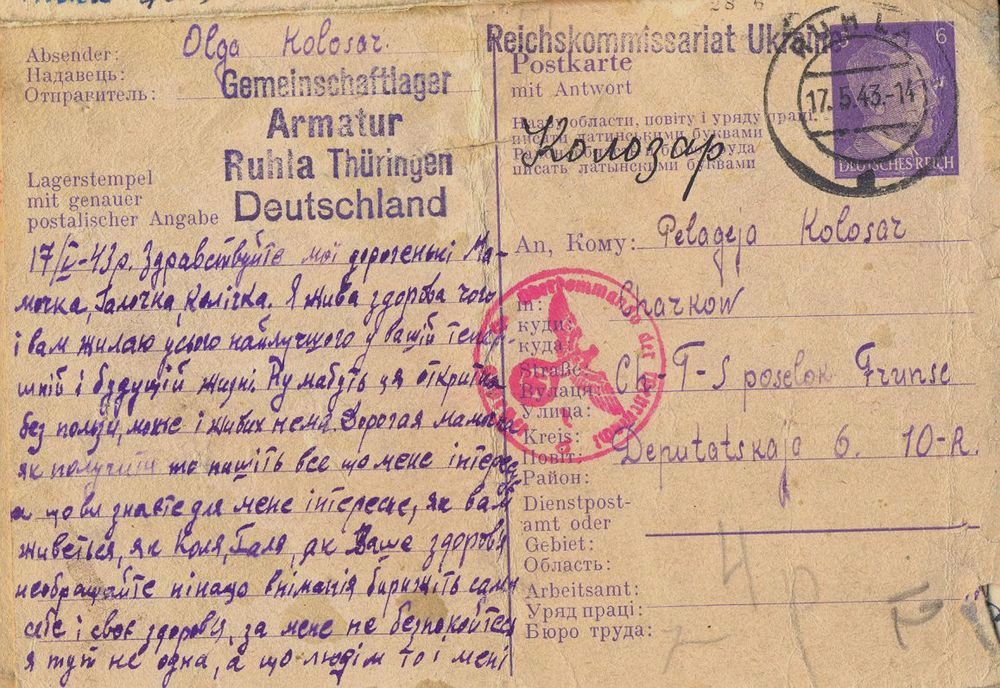 Absender:
Надавець:
Отправитель:
Olga Kolosar.
Gemeinschaftlager
Armatur
Ruhla Thüringen
Deutschland
Lagerstempel
mit genauer
postalischer Angabe
17/V-43р. Здравствуйте мої дорогенькі Ма-
мочка, Галочка, Колічка. Я жива здорова чого
і вам жилаю усього найлучшого у вашій тепер-
шній і будущій жизні. Ну мабуть ця откритка
без ползи, може і живих нема. Дорогая мамочка
як получити то пишіть все що мене інтересу
а що ви знаєте для мене інтересне, як вам
живеться, як Коля, Галя, як Ваше здоровя
необращайте нінащо вніманія бирижіть самі
себе і своє здоровя, за мене не безпокойтесь
я тут не одна, а що людім то і мені
Reichskommissariat Ukraine
Postkarte
mit Antwort
Назву области, повіту і уряду праці
писати латинськими буквами
писать латынскими буквами
Колозар
RUHLA
17.5.43.-14
6
DEUTSCHES REICH
An, Кому: Pelageja Kolosar
in:
куди:
куда:
Charkow
Straße:
Вулиця:
Улица:
Ch-T-S poselok Frunse
Kreis:
Повіт:
Район:
Deputatskaja 6. 10-R.
Dienstpost-
amt oder
Gebiet:
Область:
Arbeitsamt:
Уряд праці:
Бюро труда:
Oberkommando der Wehrmacht